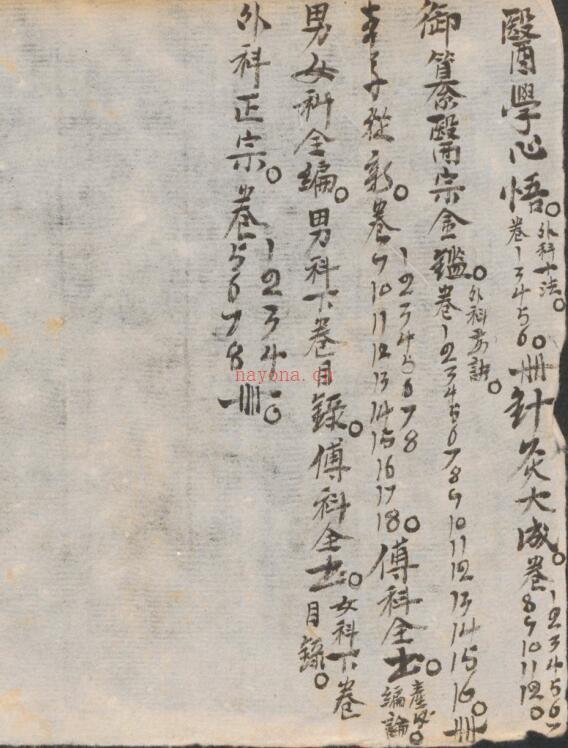 醫學心悟。外科十法。卷13456。冊針灸大成。卷1234567
89101112。
御纂醫宗金鑑。外科要訣。卷12345678910111213141516。冊
本草從新。卷12345678
9101112131415161718。傅科全士。產後編論。
男女科全編。男科下卷目錄。傅科全士。女科下卷目錄。
外科正宗。卷12340
5678冊。
nayona.cn